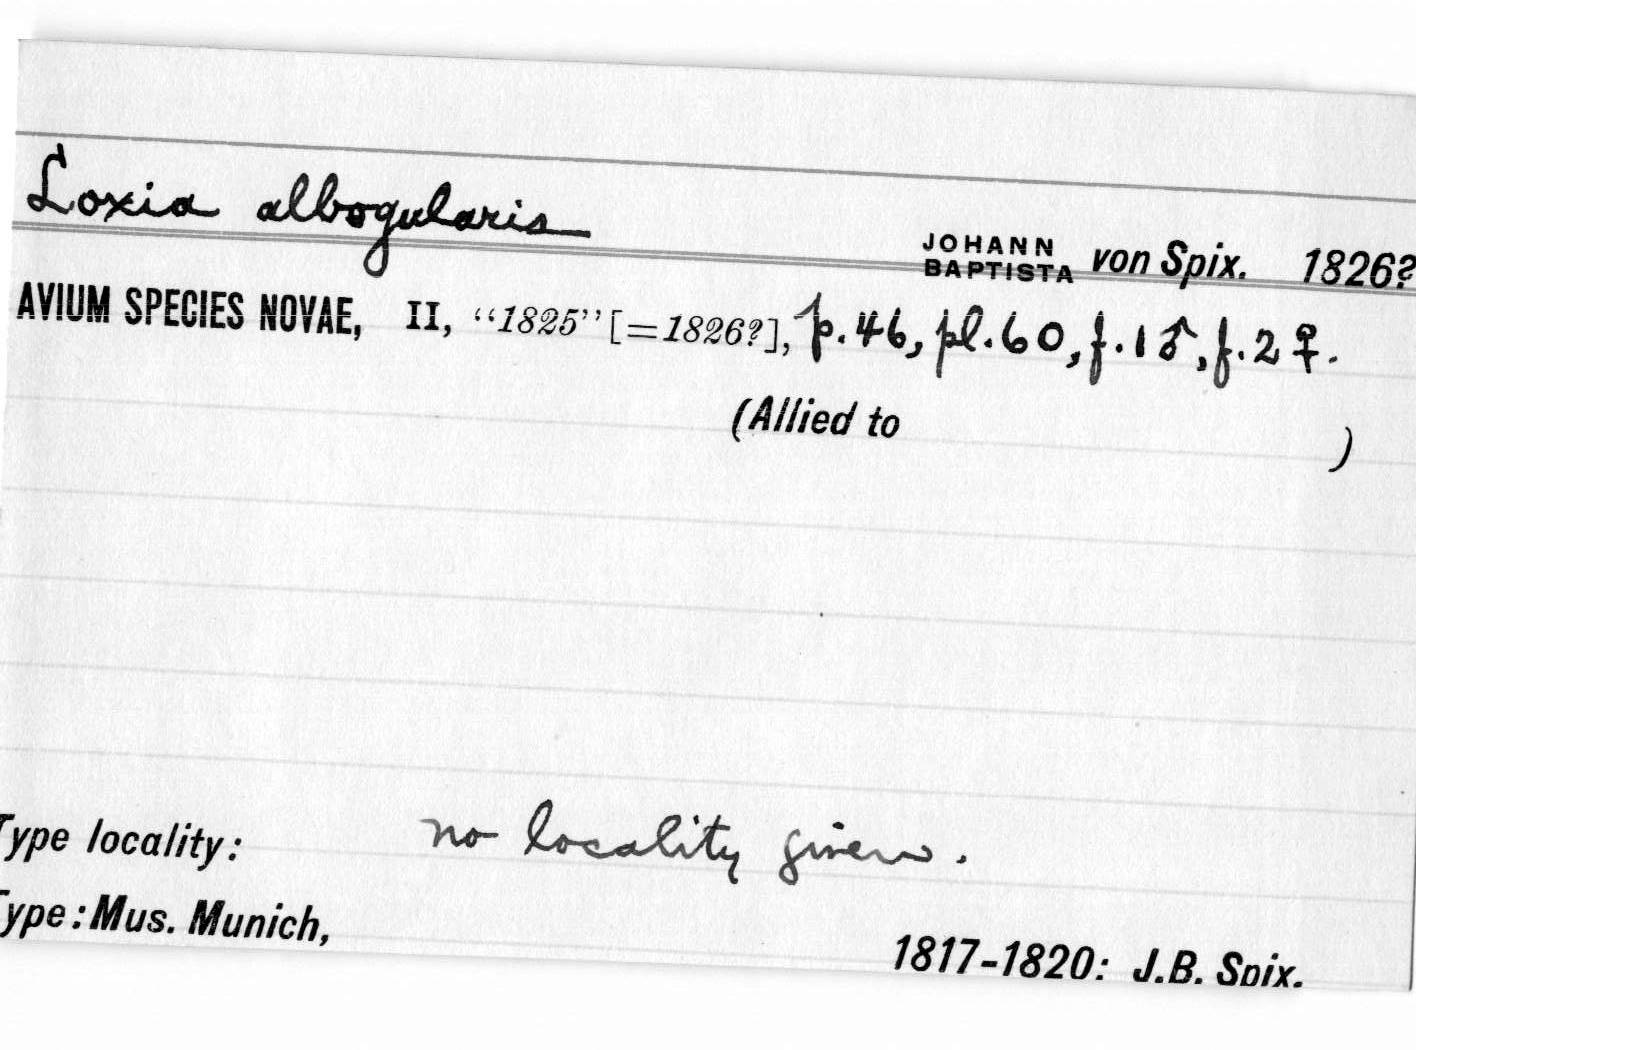 Loxia albogularis
JOHANN BAPTISTA von Spix. 1826?
AVIUM SPECIES NOVAE, II, “1825” [=1826?], p.46, pl.60, f.1♂, f.2♀.
(Allied to )
Type locality: no locality given.
Type: Mus. Munich,
1817-1820: J.B. Spix.